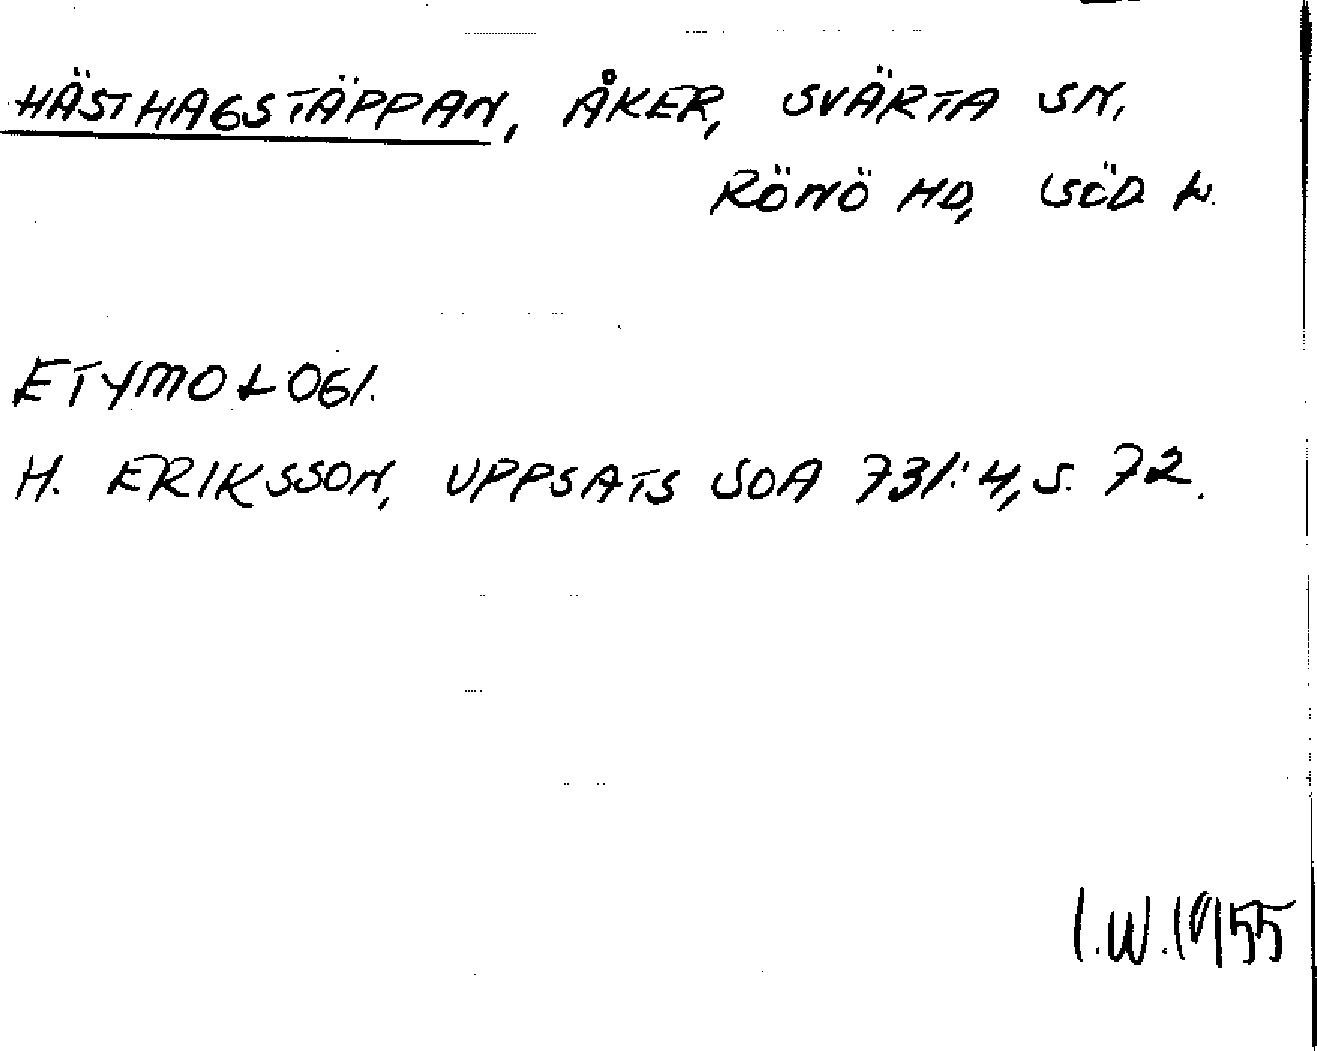 HÄSTHAGSTÄPPAN, ÅKER, SVÄRTA SN,
RÖNÖ HD, SÖD L.
ETYMOLOGI.
H. ERIKSSON, UPPSATS SOA 731:4, S. 72.
I.W.1955